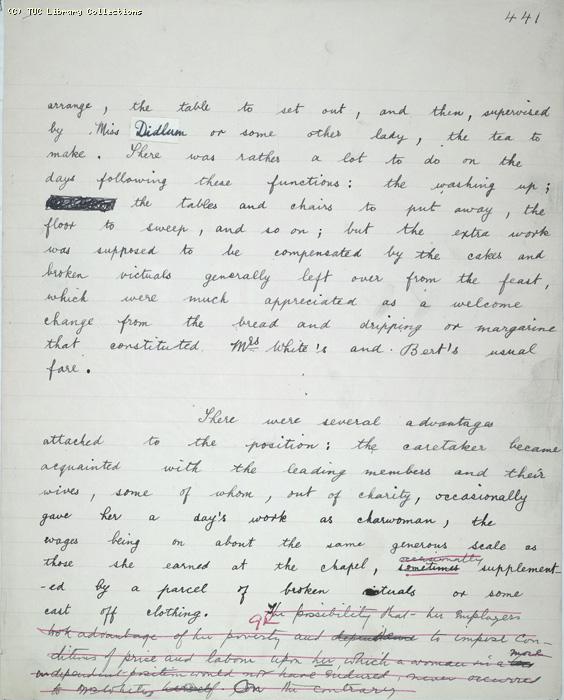 (C) TUC Library Collections
441
arrange, the table to set out, and then, supervised
by Miss Didlum or some other lady, the tea to
make. There was rather a lot to do on the
days following these functions: the washing up;
the tables and chairs to put away, the
floor to sweep, and so on; but the extra work
was supposed to be compensated by the cakes and
broken victuals generally left over from the feast,
which were much appreciated as a welcome
change from the bread and dripping or margarine
that constituted Mrs White's and Bert's usual
fare.
There were several advantages
attached to the position: the caretaker became
acquainted with the leading members and their
wives, some of whom, out of charity, occasionally
gave her a day's work as charwoman, the
wages being on about the same generous scale as
occasionally
those she earned at the chapel, sometimes supplement-
-ed by a parcel of broken victuals or some
cast off clothing. The possibility that her employers
took advantage of her poverty and to impose con-
more
ditions of price and labour upon her, which a woman in a
independent position would not have endured, never occurred
to Mrs White herself On the contrary